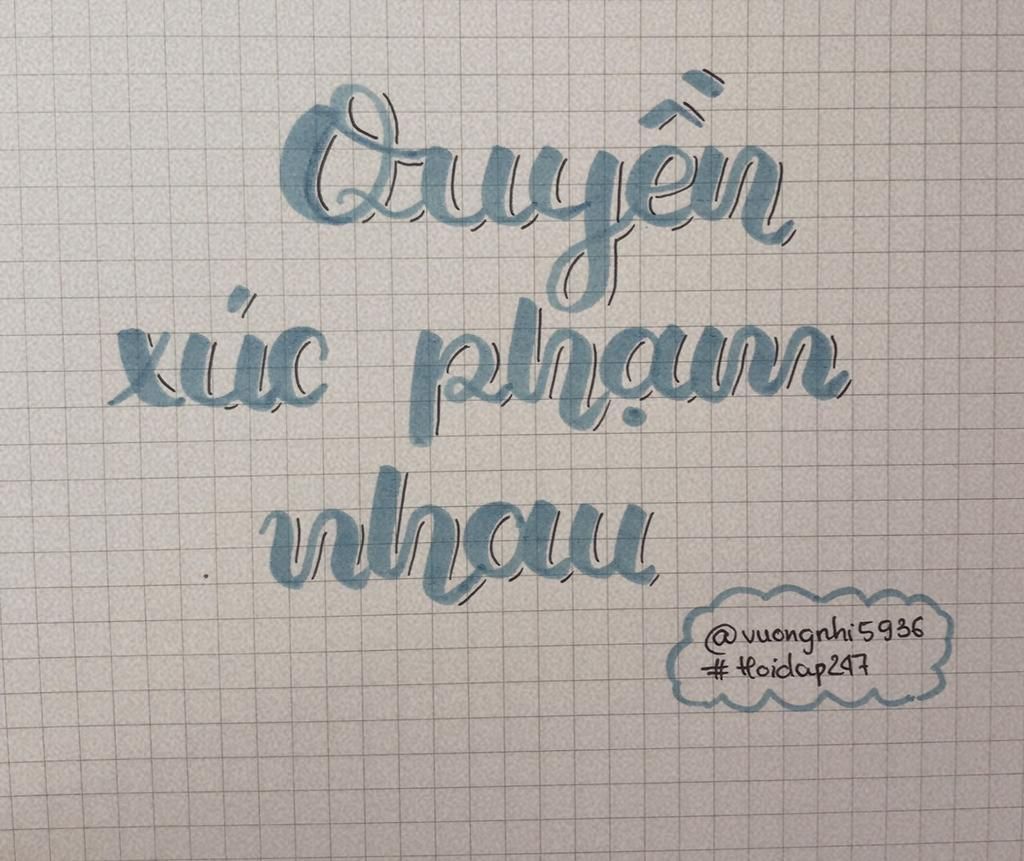 Quyền
xúc phạm
nhau
@vuongnhi5936
#Hoidap247